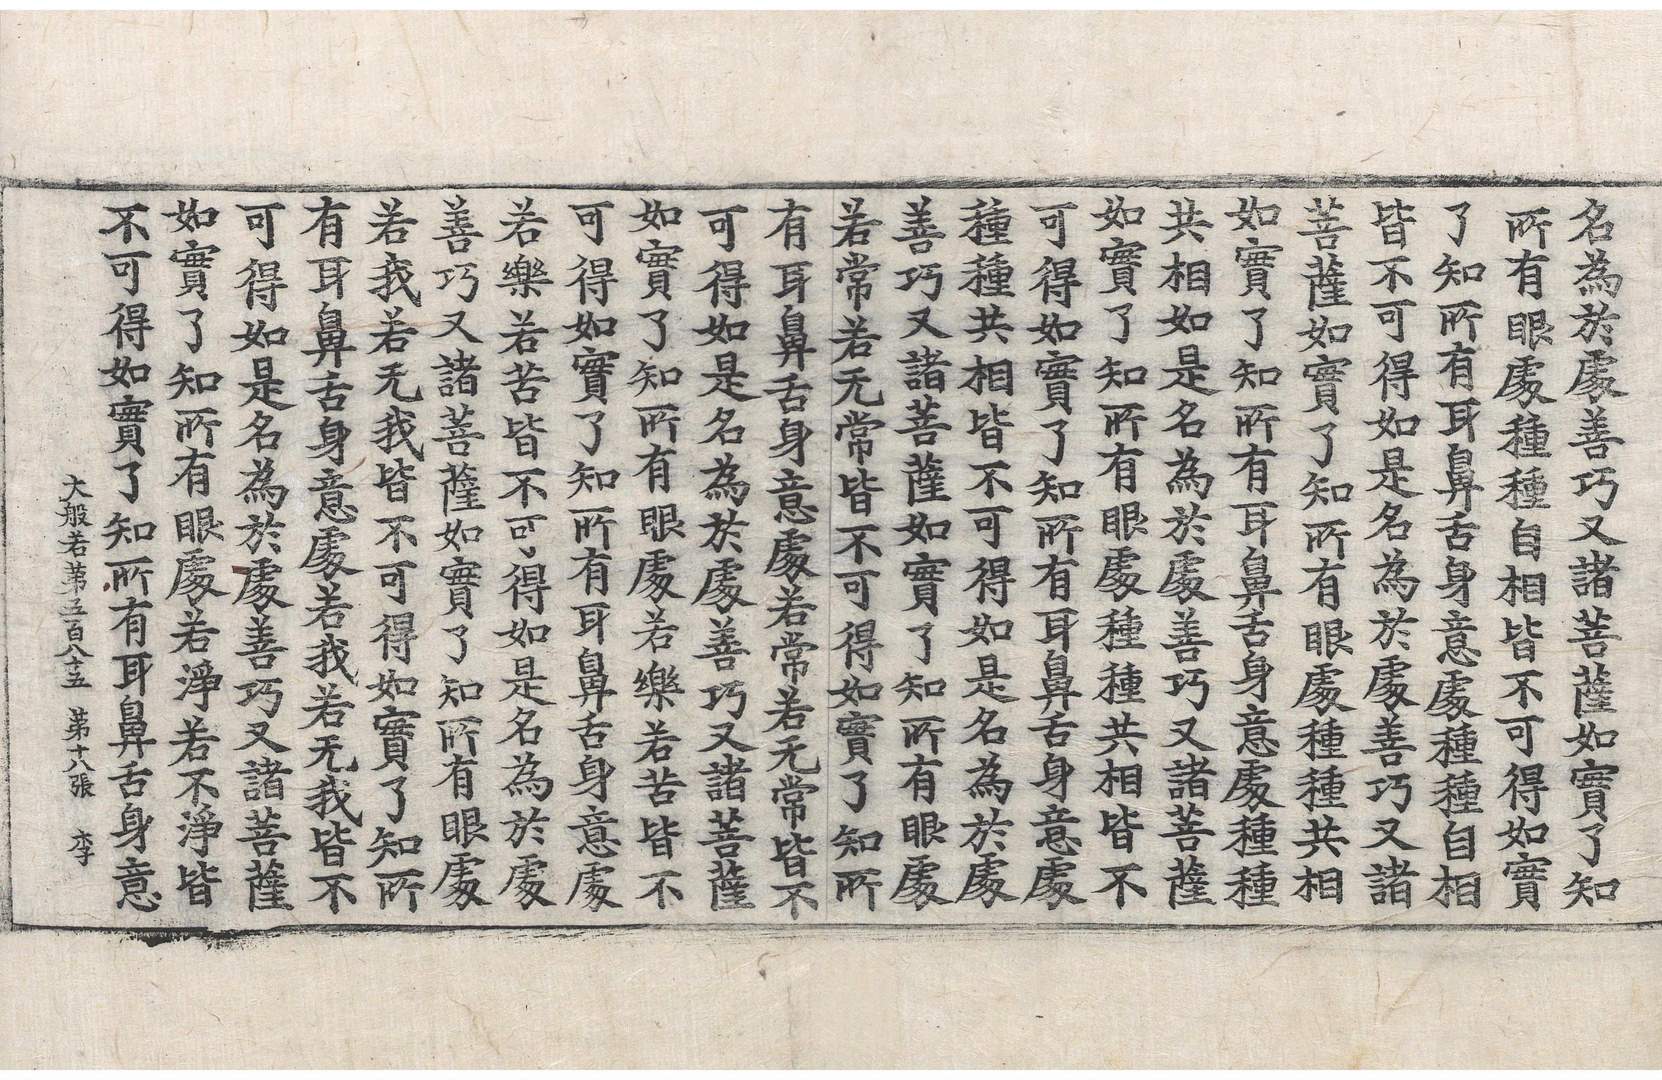 名為於處善巧又諸菩薩如實了知
所有眼處種種自相皆不可得如實
了知所有耳鼻舌身意處種種自相
皆不可得如是名為於處善巧又諸
菩薩如實了知所有眼處種種共相
如實了知所有耳鼻舌身意處種種
共相如是名為於處善巧又諸菩薩
如實了知所有眼處種種共相皆不
可得如實了知所有耳鼻舌身意處
種種共相皆不可得如是名為於處
善巧又諸菩薩如實了知所有眼處
若常若无常皆不可得如實了知所
有耳鼻舌身意處若常若无常皆不
可得如是名為於處善巧又諸菩薩
如實了知所有眼處若樂若苦皆不
可得如實了知所有耳鼻舌身意處
若樂若苦皆不可得如是名為於處
善巧又諸菩薩如實了知所有眼處
若我若无我皆不可得如實了知所
有耳鼻舌身意處若我若无我皆不
可得如是名為於處善巧又諸菩薩
如實了知所有眼處若淨若不淨皆
不可得如實了知所有耳鼻舌身意
大般若苐五百八十五 苐十八張 李